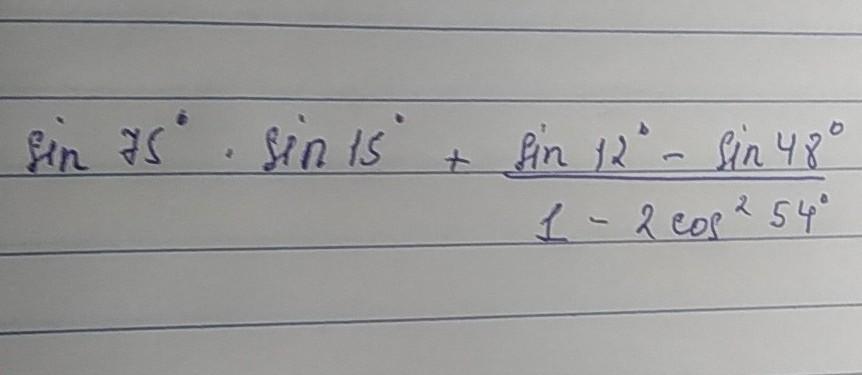 sin 75° · sin 15° + (sin 12° - sin 48°) / (1 - 2 cos² 54°)